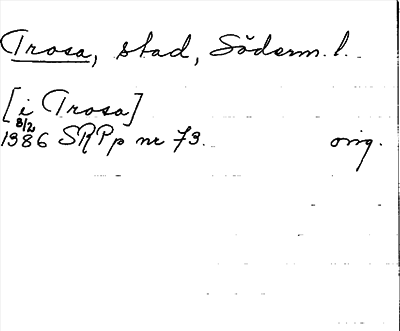 Trosa, stad, Söderm. l.
[i Trosa]
8/2
1386 SRPp nr 73. orig.